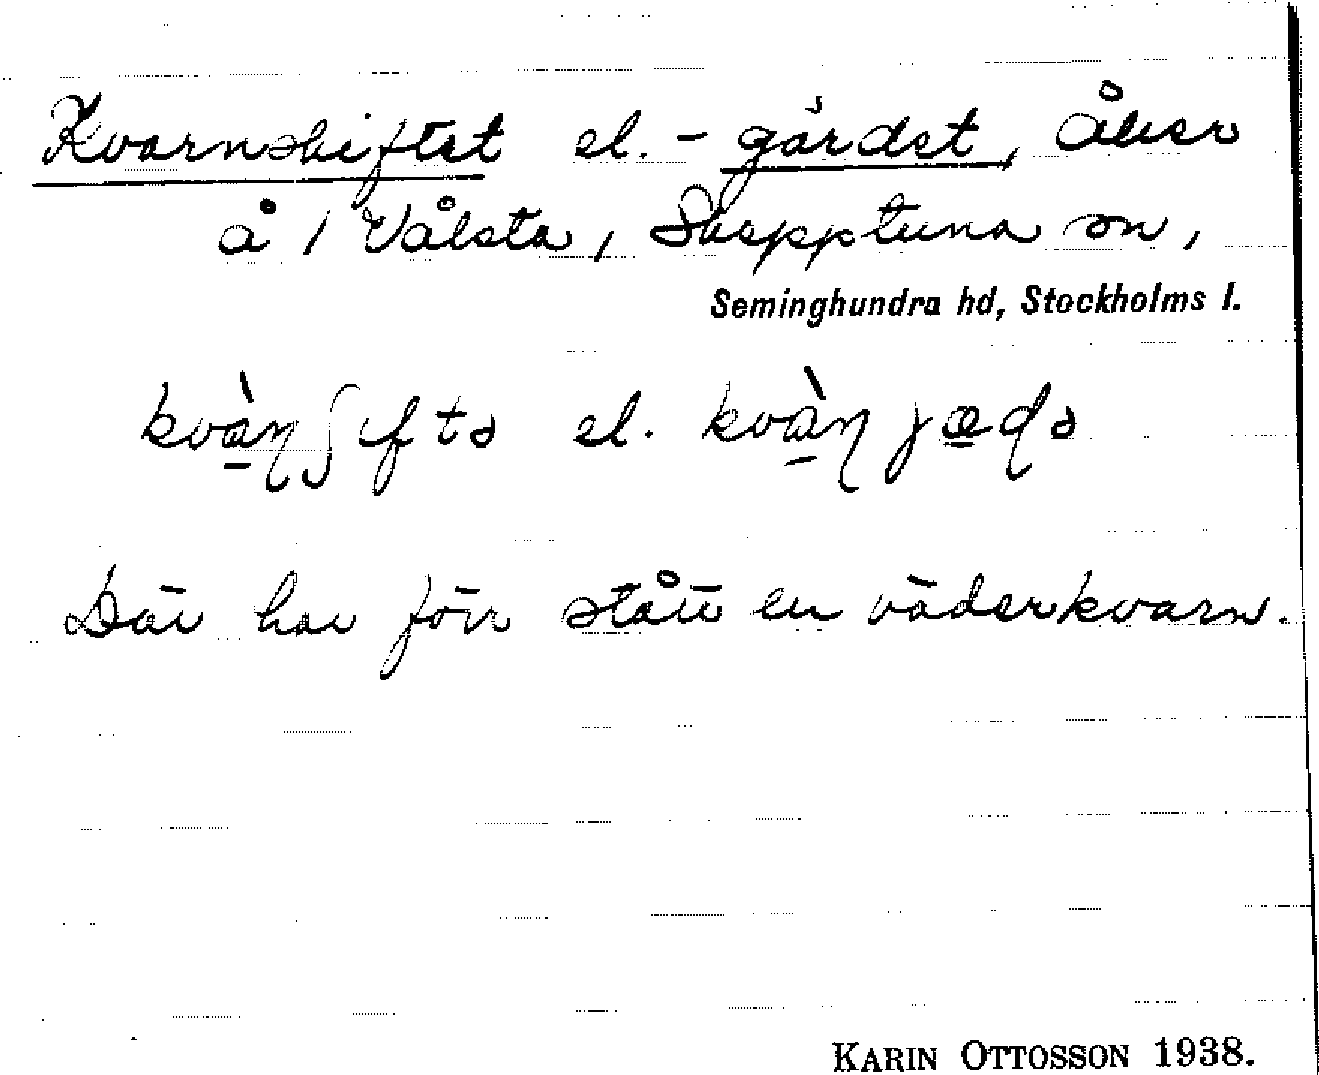 Kvarnskiftet el. -gärdet, åker
å 1 Vålsta, Skepptuna sn,
Seminghundra hd, Stockholms l.
kvὰɳʃiftə el. kvὰɳjæɖə
Där har förr stått en väderkvarn.
KARIN OTTOSSON 1938.